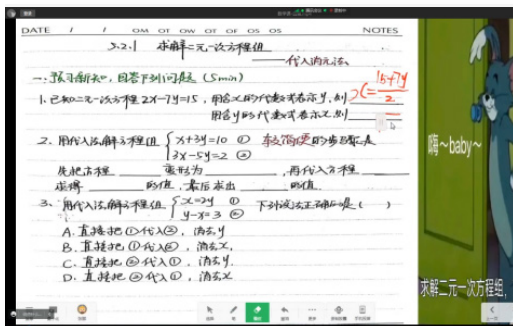 DATE / / OM OT OW OT OF OS OS NOTES
5.2.1 求解二元一次方程组
——代入消元法
一、预习新知,回答下列问题 (5min)
1. 已知二元一次方程 2x-7y=15, 用含x的代数式表示y, 则
x=\frac{15+7y}{2}
用含y的代数式表示x, 则
2. 用代入法解方程组 { x+3y=10 ① 较简便的步骤是
3x-5y=2 ②
先把方程 变形为 , 再代入方程
求得 的值, 最后求出 的值.
3. 用代入法解方程组 { x=2y ① 下列说法正确的是 ( )
y-x=3 ②
A. 直接把①代入②, 消去y
B. 直接把①代入②, 消去x.
C. 直接把②代入①, 消去y.
D. 直接把②代入①, 消去x
嗨~baby~
求解二元一次方程组,